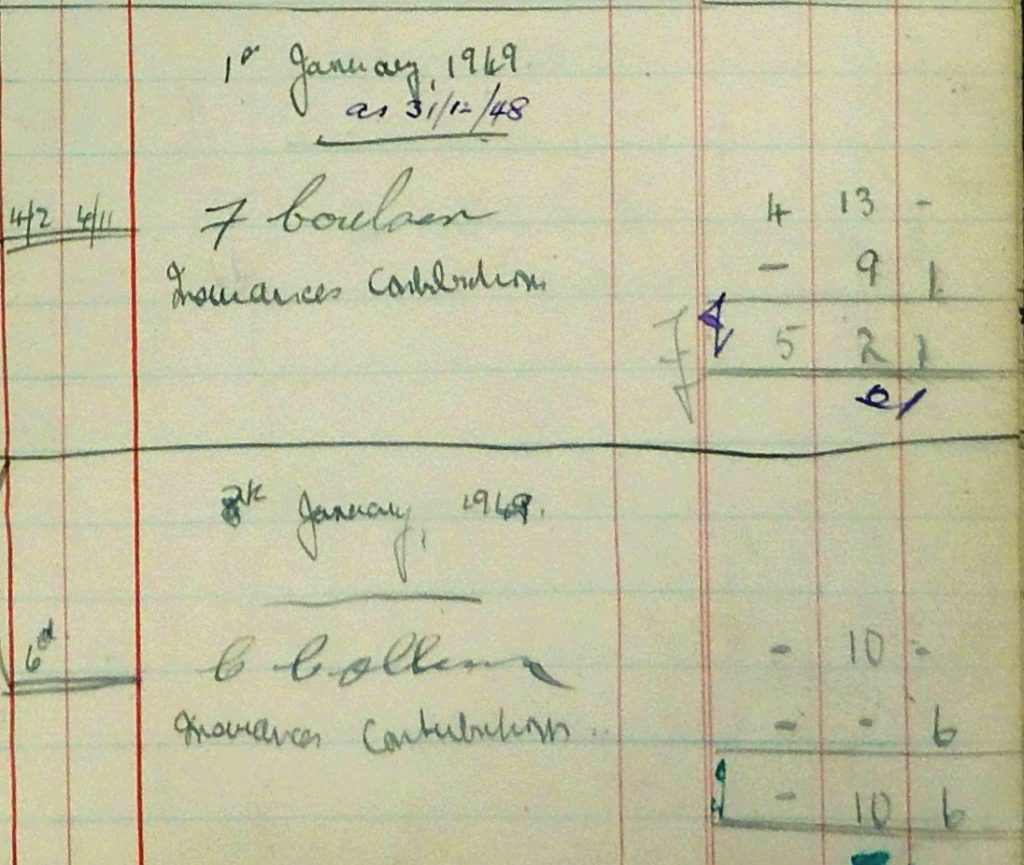 1st January, 1949
as 31/12/48
4/2 4/11 7 4 13 -
Insurances Contributions - 9 1
5 2 1
8th January, 1949.
6d C Collins - 10 -
Insurances Contributions - - 6
- 10 6